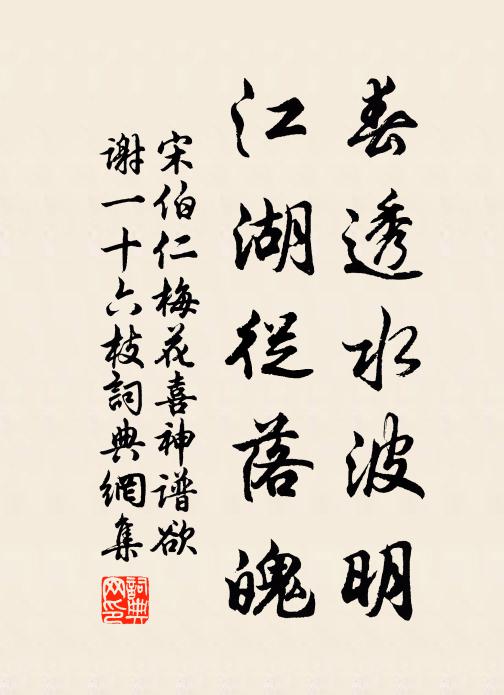 春透水波明
江湖從落魄
宋伯仁梅花喜神谱欲
谢一十六枝詞典網集
詞典网印